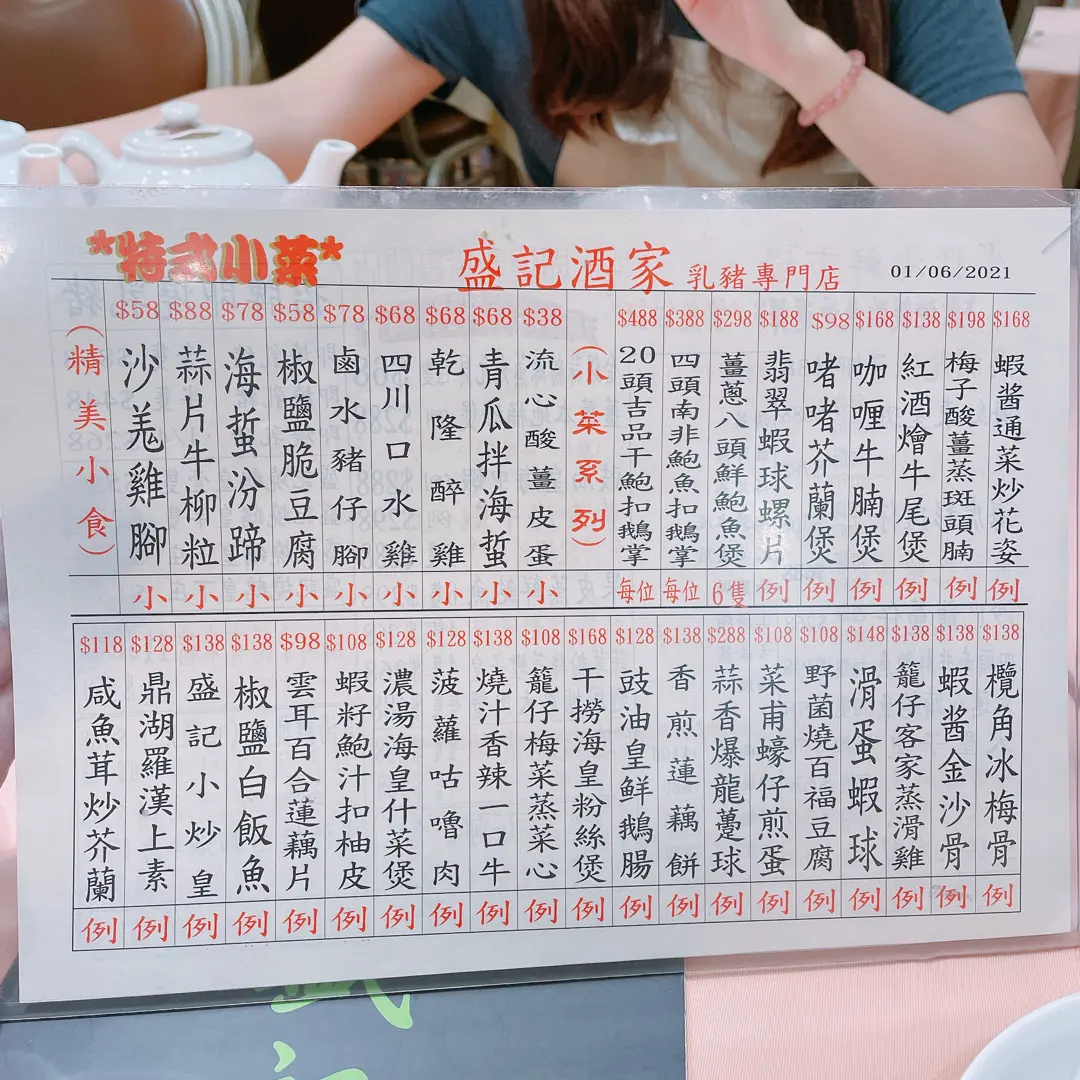 *特式小菜*
盛記酒家 乳豬專門店
01/06/2021
(精美小食)
$58
沙羗雞腳
小
$88
蒜片牛柳粒
小
$78
海蜇汾蹄
小
$58
椒鹽脆豆腐
小
$78
鹵水豬仔腳
小
$68
四川口水雞
小
$68
乾隆醉雞
小
$68
青瓜拌海蜇
小
$38
流心酸薑皮蛋
小
(小菜系列)
$488
20頭吉品干鮑扣鵝掌
每位
$388
四頭南非鮑魚扣鵝掌
每位
$298
薑蔥八頭鮮鮑魚煲
6隻
$188
翡翠蝦球螺片
例
$98
啫啫芥蘭煲
例
$168
咖喱牛腩煲
例
$138
紅酒燴牛尾煲
例
$198
梅子酸薑蒸斑頭腩
例
$168
蝦醬通菜炒花姿
例
$118
咸魚茸炒芥蘭
例
$128
鼎湖羅漢上素
例
$138
盛記小炒皇
例
$138
椒鹽白飯魚
例
$98
雲耳百合蓮藕片
例
$108
蝦籽鮑汁扣柚皮
例
$128
濃湯海皇什菜煲
例
$128
菠蘿咕嚕肉
例
$138
燒汁香辣一口牛
例
$108
籠仔梅菜蒸菜心
例
$168
干撈海皇粉絲煲
例
$128
豉油皇鮮鵝腸
例
$138
香煎蓮藕餅
例
$288
蒜香爆龍躉球
例
$108
菜甫蠔仔煎蛋
例
$108
野菌燒百福豆腐
例
$148
滑蛋蝦球
例
$138
籠仔客家蒸滑雞
例
$138
蝦醬金沙骨
例
$138
欖角冰梅骨
例